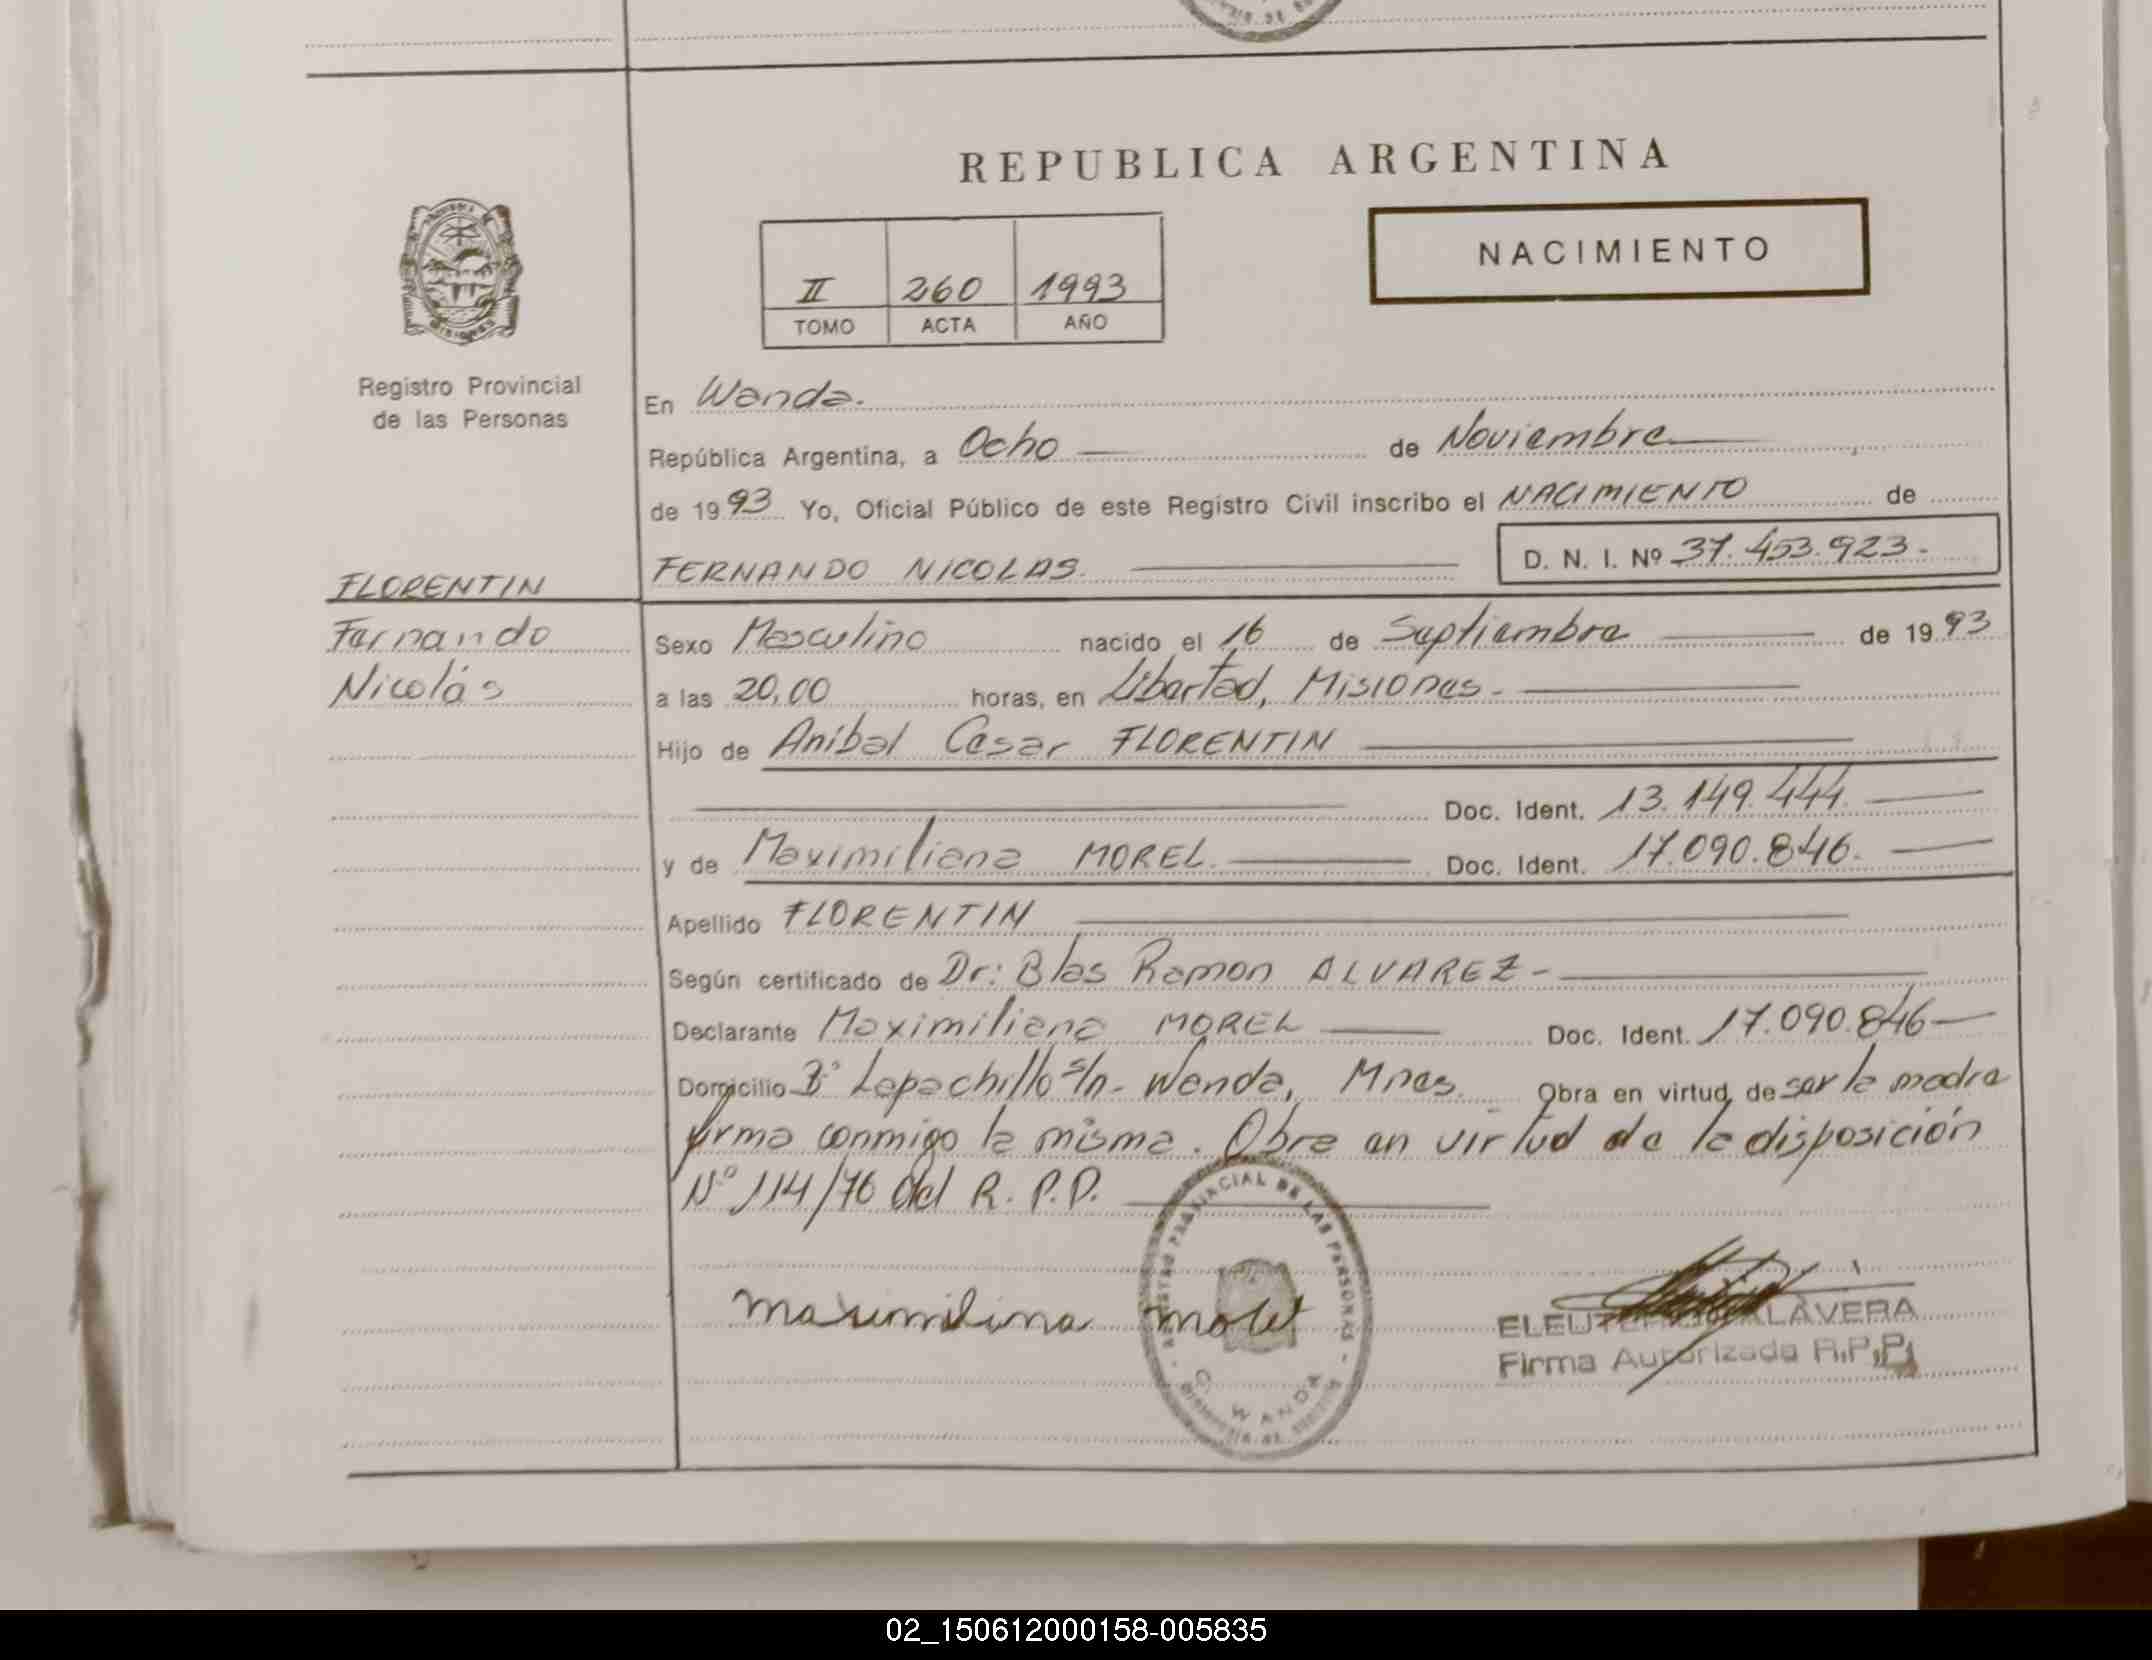 REPUBLICA ARGENTINA
NACIMIENTO
II 260 1993
TOMO ACTA AÑO
Registro Provincial
de las Personas
En Wanda.
República Argentina, a Ocho de Noviembre,
de 1993 Yo, Oficial Público de este Registro Civil inscribo el NACIMIENTO de
FERNANDO NICOLAS. D. N. I. Nº 37.453.923.-
FLORENTIN
Fernando
Nicolás
Sexo Masculino nacido el 16 de Septiembre de 1993
a las 20,00 horas, en Libertad, Misiones.-
Hijo de Anibal Cesar FLORENTIN
Doc. Ident. 13.149.444.
y de Maximiliana MOREL. Doc. Ident. 17.090.846.
Apellido FLORENTIN
Según certificado de Dr: Blas Ramon ALVAREZ-
Declarante Maximiliana MOREL Doc. Ident. 17.090.846-
Domicilio Bº Lapachillo s/n- Wanda, Mnes. Obra en virtud de ser la madre
firma conmigo la misma. Obra en virtud de la disposición
Nº 114/76 del R. P. P.
Maximiliana Morel
REGISTRO PROVINCIAL DE LAS PERSONAS
WANDA
LAVERA
Firma Autorizada R.P.P.
02_150612000158-005835